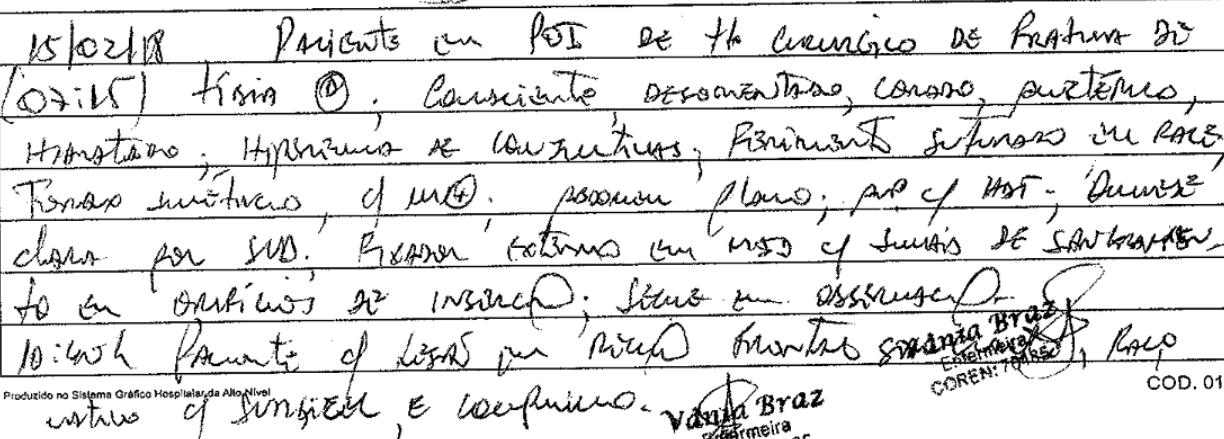 15/02/18 Paciente em POI de tto cirúrgico de fratura de
(07:15) tíbia Ⓓ. Consciente, desorientado, corado, eutérmico,
Hidratado; Hiperemia de conjuntivas; Ferimento suturado em face,
Torax simétrico, c/ MV⊕. Abdomen plano; AVP c/ HDT; Diurese
clara por SVD. Fixador externo em MSD c/ sinais de sangramen-
to em orifícios de inserção; segue em observação.
10:40h Paciente c/ lesão em região frontal
Vania Braz
Enfermeira
COREN:
Produzido no Sistema Gráfico Hospitalar da Alto Nível
COD. 01
c/ e
Vania Braz
Enfermeira